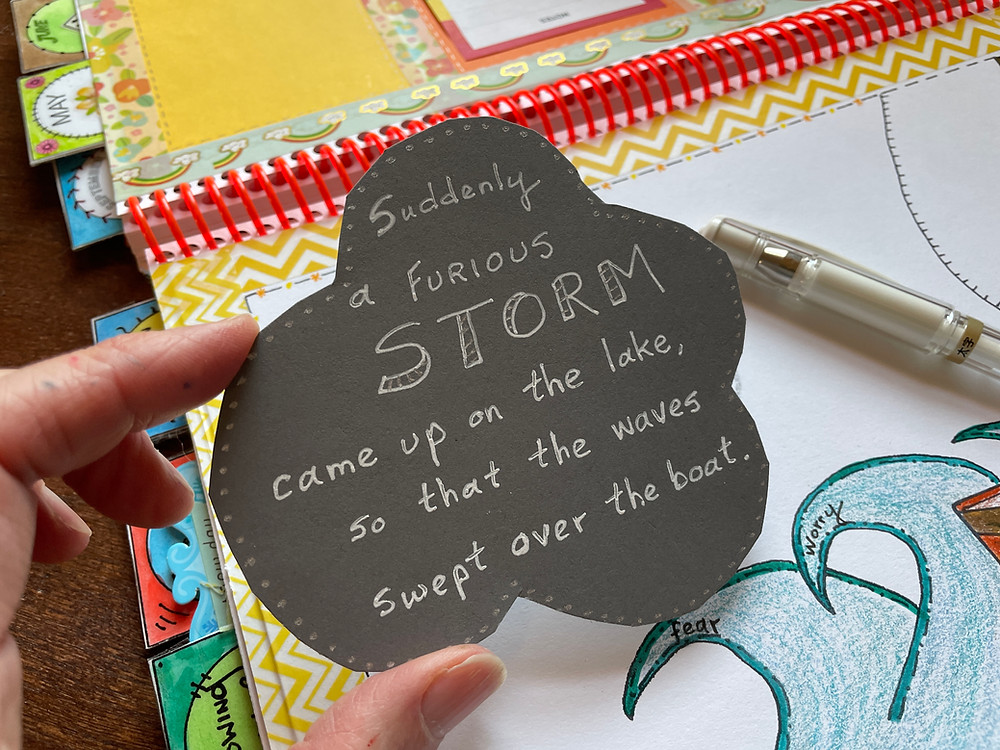 JUNE
MAY
Suddenly
a FURIOUS
STORM
came up on the lake,
so that the waves
swept over the boat.
太字
worry
fear